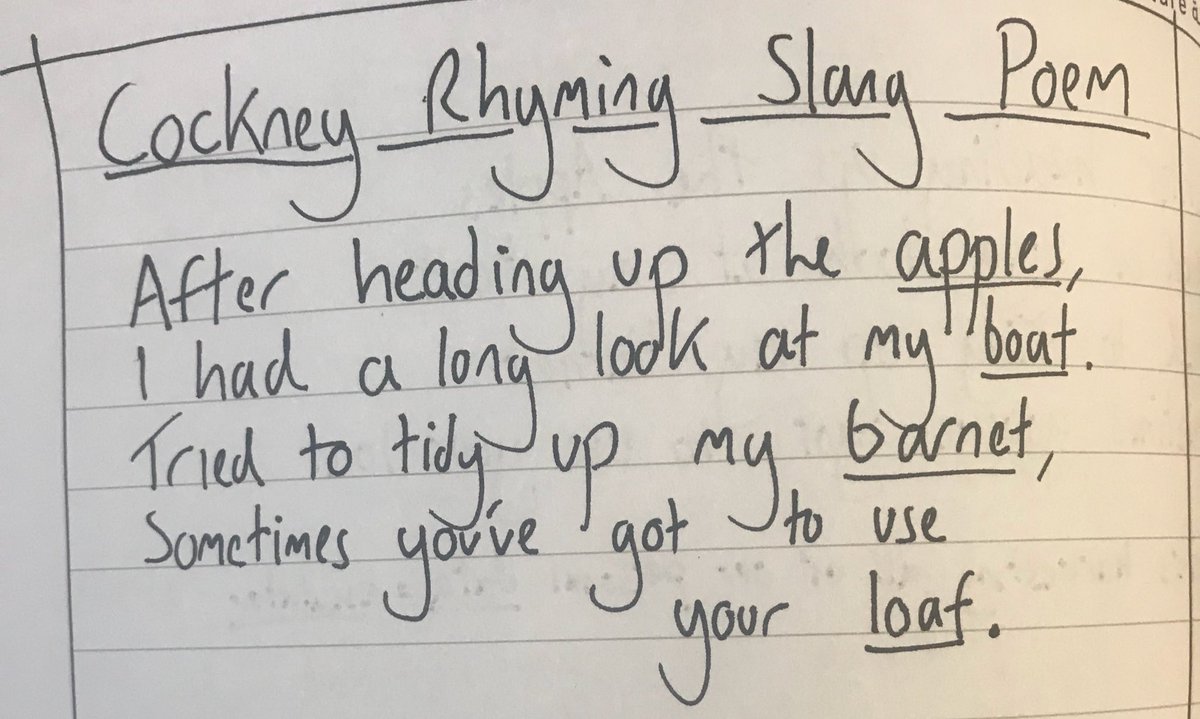 Cockney Rhyming Slang Poem
After heading up the apples,
I had a long look at my boat.
Tried to tidy up my barnet,
Sometimes you've got to use
your loaf.